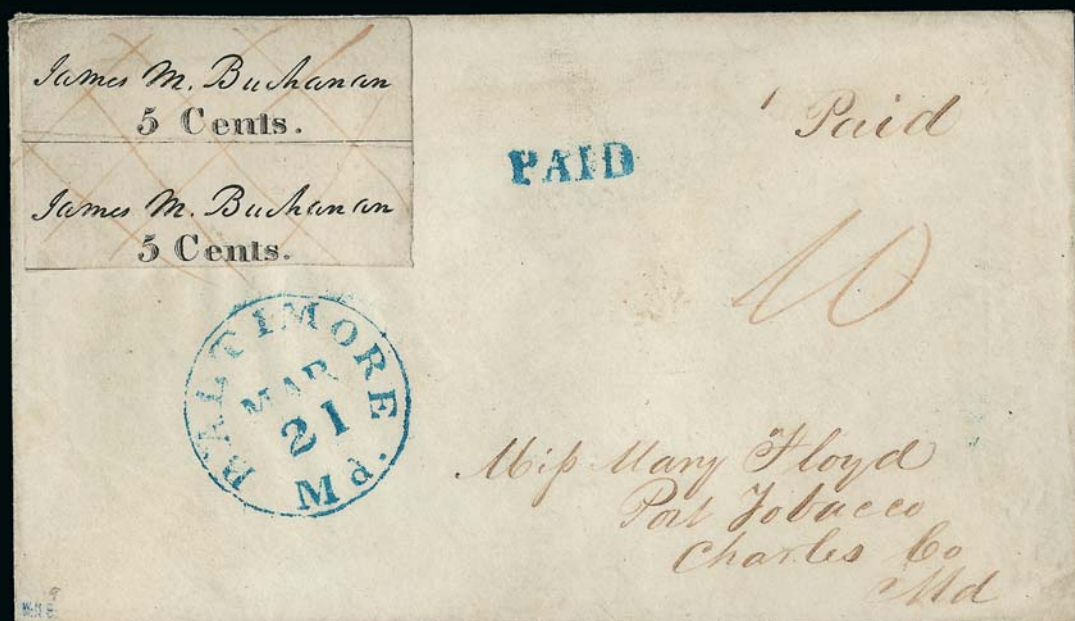 James M. Buchanan
5 Cents.
James M. Buchanan
5 Cents.
PAID
Paid
10
BALTIMORE Md.
MAR
21
Miss Mary Floyd
Port Tobacco
Charles Co
Md